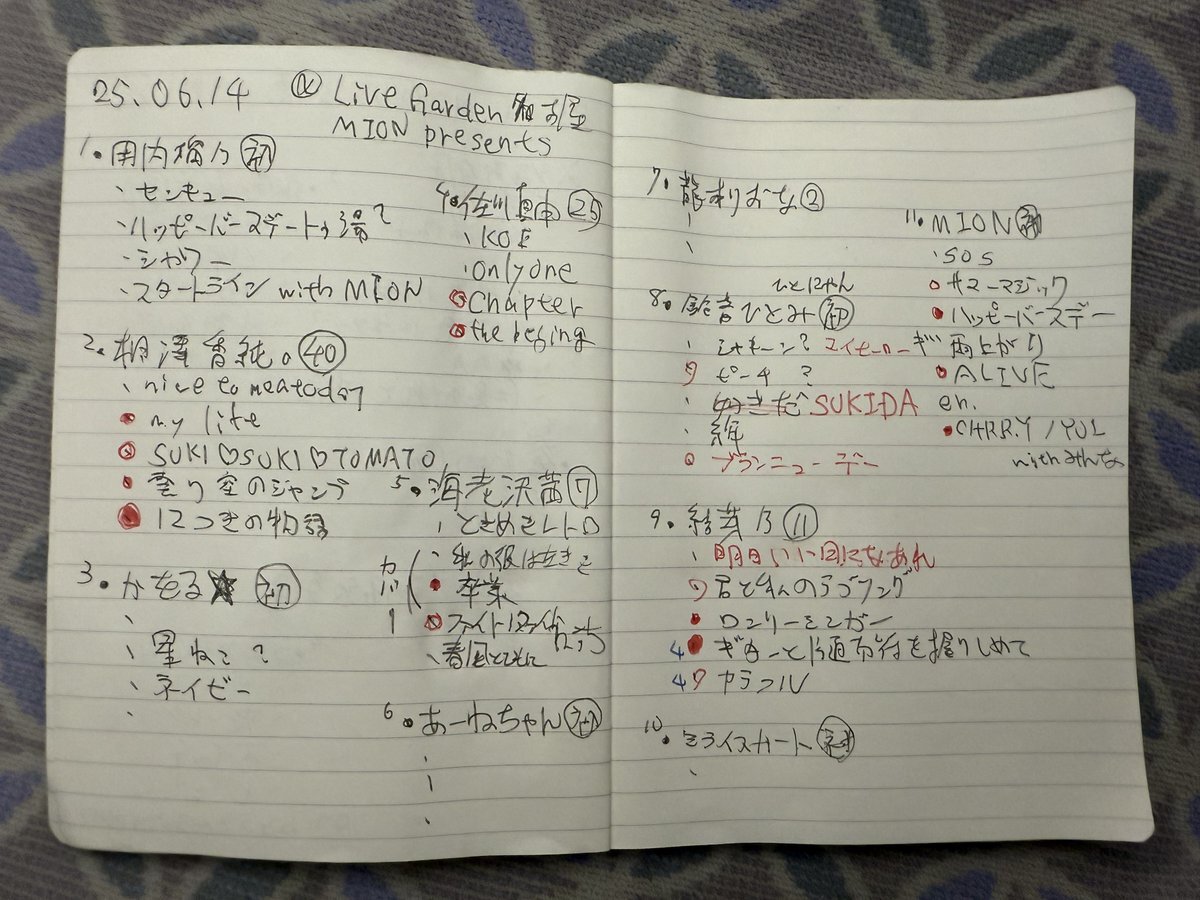 25.06.14 @ Live Garden 名古屋
MION presents
1. 内 初
、センキュー
、ハッピーバースデートゥ湯?
、シャワー
、スタートライン with MION
2. 相澤香純。 40
、nice to meatoday
my life
SUKI♡SUKI♡TOMATO
曇り空のジャンプ
12つきの物語
3. かをる★ 初
、
、星ねこ?
、ネイビー
、
4. 佐川真由 25
、KOE
、only one
Chapter
the begging
5. 海老沢茜 7
、ときめきレトロ
カバー
、私の彼は左きき
卒業
ファイト
、春風とともに
6. あーねちゃん 初
、
、
、
7. おな 2
、
、
8. 鈴音ひとみ 初
ひとにゃん
、シャキーン? エイセーローギ
ワ ピーチ ?
、好きだ SUKIDA
、絆
ブランニューデー
9. 結芽乃 11
、明日いい日になあれ
ワ 君と4人のラブソング
ロンリーシンガー
4 ぎたーと片道を握りしめて
4 ワ カラフル
10. ミライスカート 初
、
11. MION 初
、SOS
サマーマジック
ハッピーバースデー
雨上がり
ALIVE
en.
CHRRY / YUI
with みんな